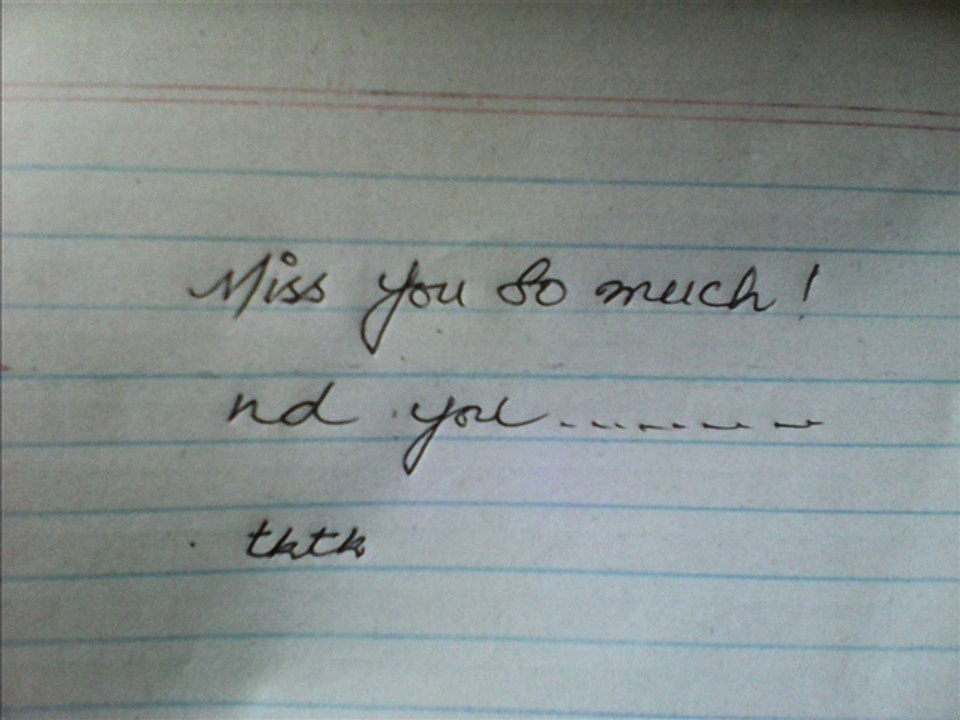 Miss you so much!
nd you.........
tktk